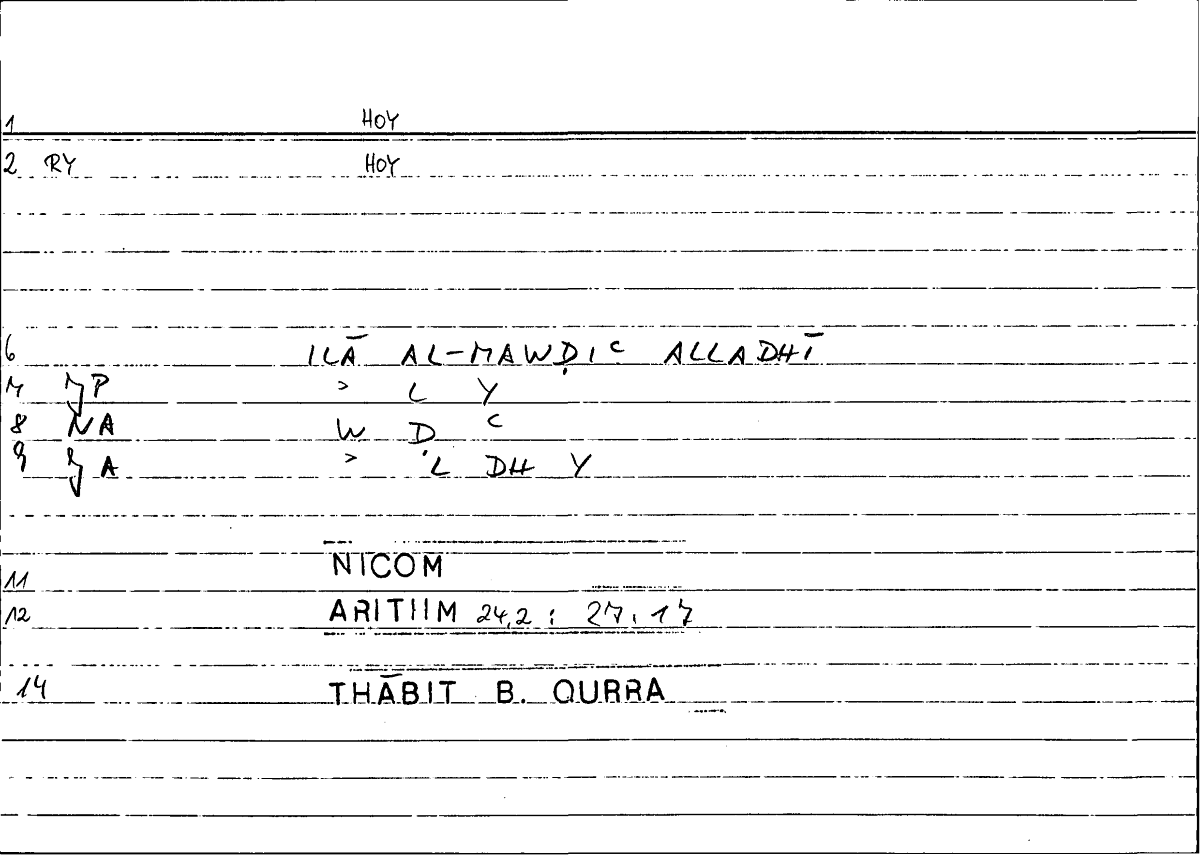 1 HOY
2 RY HOY
6 ILĀ AL-MAWḌIC ALLADHĪ
7 JP > L Y
8 NA W Ḍ C
9 JA > L DH Y
11 NICOM
12 ARITHM 24,2 : 27,17
14 THĀBIT B. QURRA